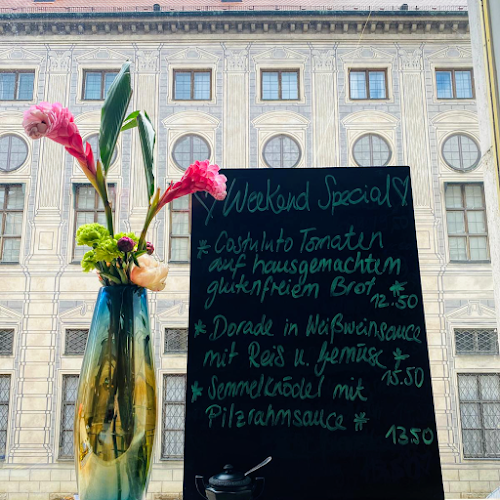 ♡ Weekend Special ♡
* Costuluto Tomaten
auf hausgemachten
glutenfreiem Brot
12.50
* Dorade in Weißweinsauce
mit Reis u. Gemüse *
15.50
* Semmelknödel mit
Pilzrahmsauce *
13.50